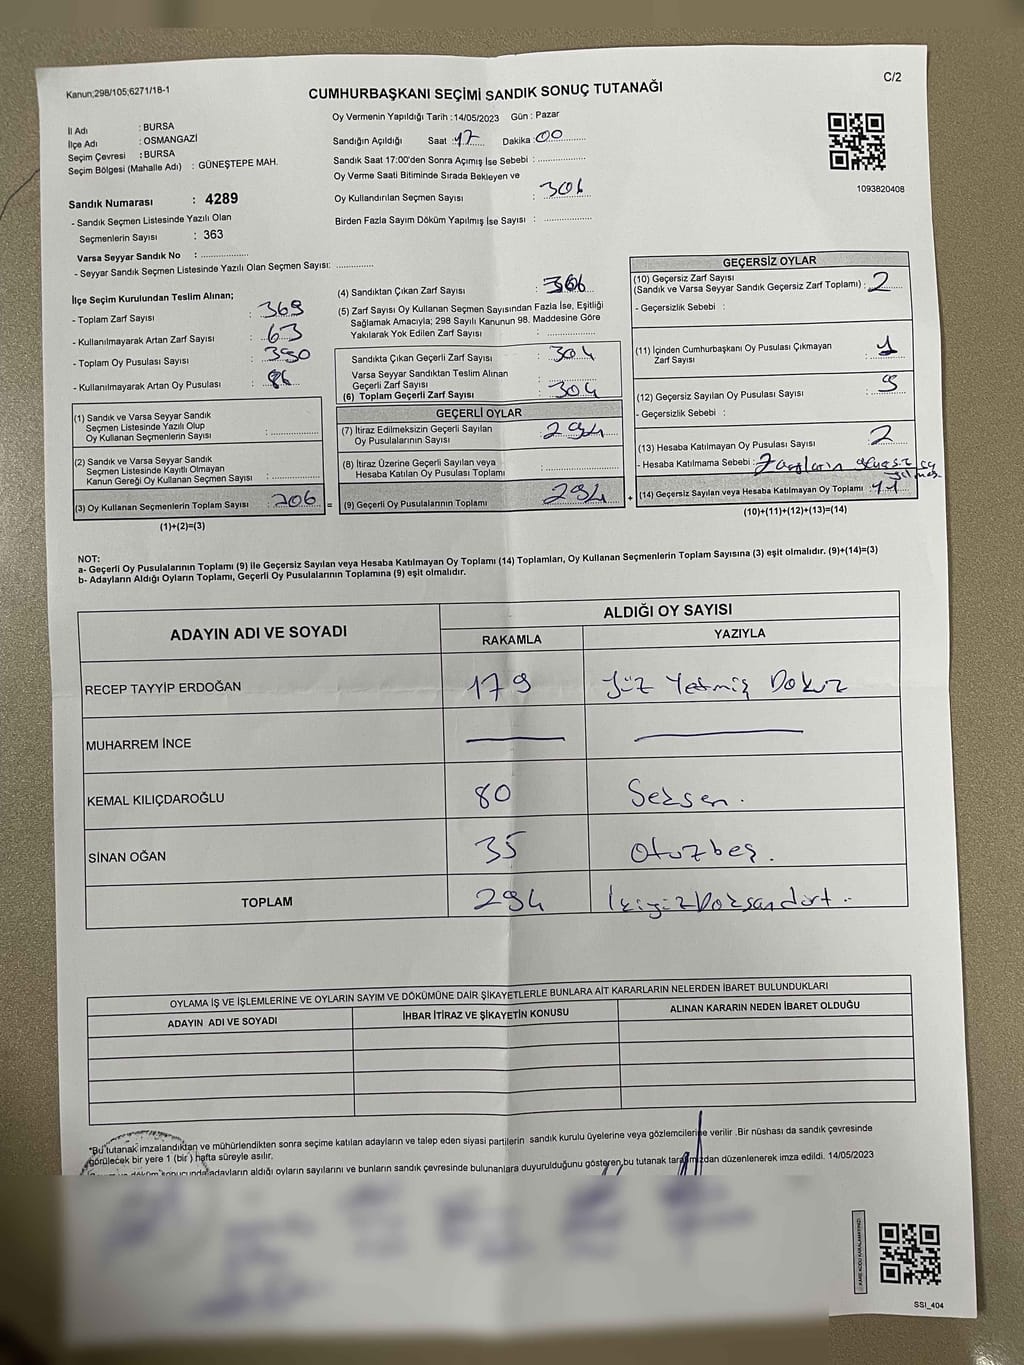 Kanun;298/105;6271/18-1
C/2
CUMHURBAŞKANI SEÇİMİ SANDIK SONUÇ TUTANAĞI
İl Adı : BURSA
İlçe Adı : OSMANGAZİ
Seçim Çevresi : BURSA
Seçim Bölgesi (Mahalle Adı) : GÜNEŞTEPE MAH.
Sandık Numarası : 4289
- Sandık Seçmen Listesinde Yazılı Olan
Seçmenlerin Sayısı : 363
Varsa Seyyar Sandık No : ..................
- Seyyar Sandık Seçmen Listesinde Yazılı Olan Seçmen Sayısı: ..............
Oy Vermenin Yapıldığı Tarih : 14/05/2023 Gün : Pazar
Sandığın Açıldığı Saat : 17 Dakika : 00
Sandık Saat 17:00'den Sonra Açımış İse Sebebi : ..................
Oy Verme Saati Bitiminde Sırada Bekleyen ve
Oy Kullandırılan Seçmen Sayısı : 306
Birden Fazla Sayım Döküm Yapılmış İse Sayısı : ..................
1093820408
İlçe Seçim Kurulundan Teslim Alınan;
- Toplam Zarf Sayısı : 369
- Kullanılmayarak Artan Zarf Sayısı : 63
- Toplam Oy Pusulası Sayısı : 390
- Kullanılmayarak Artan Oy Pusulası : 86
(1) Sandık ve Varsa Seyyar Sandık
Seçmen Listesinde Yazılı Olup
Oy Kullanan Seçmenlerin Sayısı : ..................
(2) Sandık ve Varsa Seyyar Sandık
Seçmen Listesinde Kayıtlı Olmayan
Kanun Gereği Oy Kullanan Seçmen Sayısı : ..................
(3) Oy Kullanan Seçmenlerin Toplam Sayısı : 206 =
(1)+(2)=(3)
(4) Sandıktan Çıkan Zarf Sayısı : 306
(5) Zarf Sayısı Oy Kullanan Seçmen Sayısından Fazla İse, Eşitliği
Sağlamak Amacıyla; 298 Sayılı Kanunun 98. Maddesine Göre
Yakılarak Yok Edilen Zarf Sayısı : ..................
Sandıkta Çıkan Geçerli Zarf Sayısı : 304
Varsa Seyyar Sandıktan Teslim Alınan
Geçerli Zarf Sayısı : ..................
(6) Toplam Geçerli Zarf Sayısı : 304
GEÇERLİ OYLAR
(7) İtiraz Edilmeksizin Geçerli Sayılan
Oy Pusulalarının Sayısı : 294
(8) İtiraz Üzerine Geçerli Sayılan veya
Hesaba Katılan Oy Pusulası Toplamı : ..................
(9) Geçerli Oy Pusulalarının Toplamı : 294 +
GEÇERSİZ OYLAR
(10) Geçersiz Zarf Sayısı
(Sandık ve Varsa Seyyar Sandık Geçersiz Zarf Toplamı) : 2
- Geçersizlik Sebebi :
(11) İçinden Cumhurbaşkanı Oy Pusulası Çıkmayan
Zarf Sayısı : 1
(12) Geçersiz Sayılan Oy Pusulası Sayısı : 5
- Geçersizlik Sebebi :
(13) Hesaba Katılmayan Oy Pusulası Sayısı : 2
- Hesaba Katılmama Sebebi : Zarfların
(14) Geçersiz Sayılan veya Hesaba Katılmayan Oy Toplamı : 11
(10)+(11)+(12)+(13)=(14)
NOT:
a- Geçerli Oy Pusulalarının Toplamı (9) ile Geçersiz Sayılan veya Hesaba Katılmayan Oy Toplamı (14) Toplamları, Oy Kullanan Seçmenlerin Toplam Sayısına (3) eşit olmalıdır. (9)+(14)=(3)
b- Adayların Aldığı Oyların Toplamı, Geçerli Oy Pusulalarının Toplamına (9) eşit olmalıdır.
ADAYIN ADI VE SOYADI
ALDIĞI OY SAYISI
RAKAMLA YAZIYLA
RECEP TAYYİP ERDOĞAN 179 Yüz Yetmiş Dokuz
MUHARREM İNCE
KEMAL KILIÇDAROĞLU 80 Seksen.
SİNAN OĞAN 35 Otuzbeş.
TOPLAM 294 İkiyüzDoksandört..
OYLAMA İŞ VE İŞLEMLERİNE VE OYLARIN SAYIM VE DÖKÜMÜNE DAİR ŞİKAYETLERLE BUNLARA AİT KARARLARIN NELERDEN İBARET BULUNDUKLARI
ADAYIN ADI VE SOYADI İHBAR İTİRAZ VE ŞİKAYETİN KONUSU ALINAN KARARIN NEDEN İBARET OLDUĞU
"Bu tutanak imzalandıktan ve mühürlendikten sonra seçime katılan adayların ve talep eden siyasi partilerin sandık kurulu üyelerine veya gözlemcilerine verilir .Bir nüshası da sandık çevresinde
görülecek bir yere 1 (bir ) hafta süreyle asılır.
adayların aldığı oyların sayılarını ve bunların sandık çevresinde bulunanlara duyurulduğunu gösteren,bu tutanak tarafımızdan düzenlenerek imza edildi. 14/05/2023
SSI_404